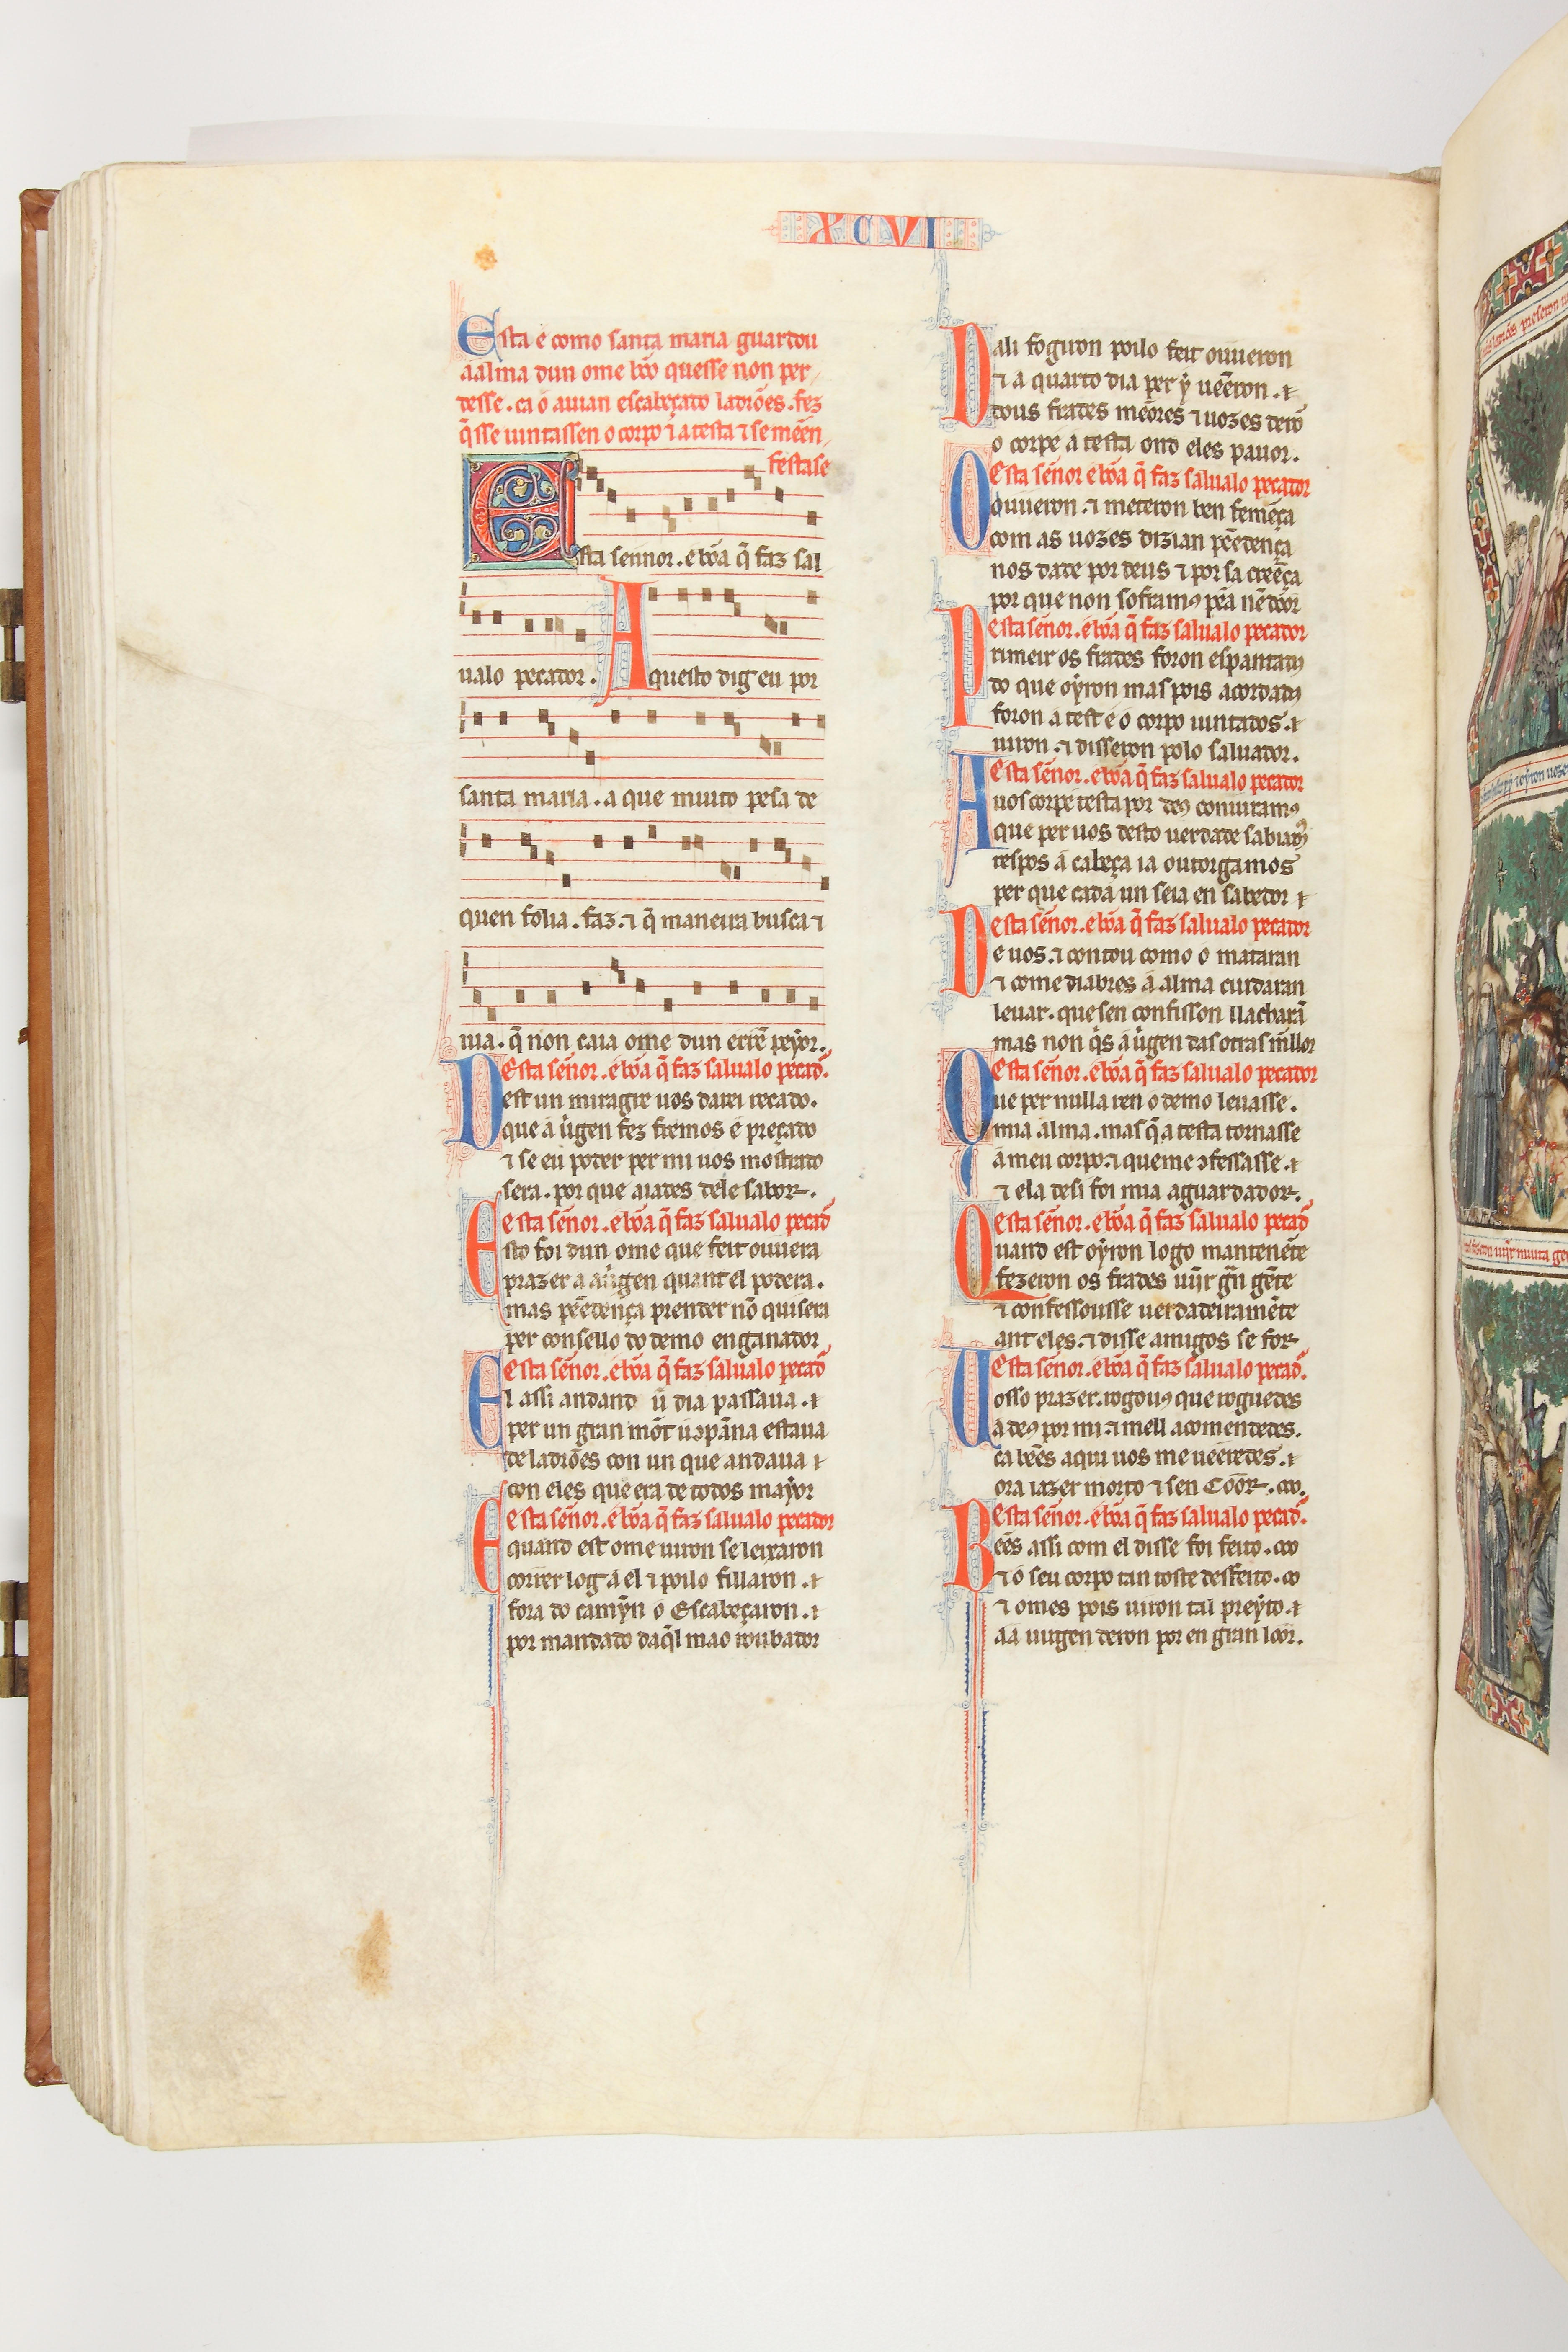 XCVI
Esta e como santa maria guardou
a alma dun ome bõo quesse non per
desse. ca o auian escabeçado ladrões. fez
q̃sse iuntassen o corpo ⁊ a testa ⁊ se mẽen
festasse
Esta sennor. e bõa q̃ faz sal
ualo pecador. Aquesto dig eu por
santa maria. a que muito pesa de
quen folia. faz. ⁊ q̃ maneira busca ⁊
uia. q̃ non caia ome dun erre peyor.
Esta sẽnor. e bõa q̃ faz salualo pecad.
Dest un miragre uos darei recado.
que a uirgen fez fremos e preçado
⁊ se eu poder per mi uos mostrado
sera. por que aiades dele sabor.
esta sẽnor. e bõa q̃ faz salualo pecad
Esto foi dun ome que feit ouuera
prazer a a uirgen quant el podera.
mas pẽedença prender nõ quisera
per consello do demo enganador
esta sẽnor. e bõa q̃ faz salualo pecad
El assi andand ũ dia passaua. ⁊
per un gran mõt u ↄpãna estaua
de ladrões con un que andaua ⁊
con eles que era de todos mayor
esta sẽnor. e bõa q̃ faz salualo pecador
E quand est ome uiron se leixaron
correr log a el ⁊ poilo fillaron. ⁊
fora do camỹn o Escabeçaron. ⁊
por mandado daq̃l mao roubador
Dali fogiron poilo feit ouueron
⁊ a quarto dia per y uẽeron. ⁊
dous frades mẽores ⁊ uozes derõ
o corpe a testa ond eles pauor.
esta sẽnor e bõa q̃ faz salualo pecador
Ouueron. ⁊ meteron ben femẽça
com as uozes dizian pẽedença
nos dade por deus ⁊ por sa creẽça
por que non soframꝰ pẽa nẽ door
esta sẽnor. e bõa q̃ faz salualo pecador
Primeir os frades foron espantadꝰ
do que oyron mas pois acordadꝰ
foron a test e o corpo iuntados. ⁊
uiron. ⁊ disseron polo saluador.
esta sẽnor. e bõa q̃ faz salualo pecador
A uos corpe testa por deꝰ coniuramꝰ
que per uos desto uerdade sabiamꝰ
respos a cabeça ia outorgamos
per que cada un seia en sabedor ⁊
esta sẽnor. e bõa q̃ faz salualo pecador
De uos. ⁊ contou como o mataran
⁊ come diabres a alma cuidaran
leuar. que sen confisson ll acharã
mas non q̇s a uirgen das otras mellor
esta sẽnor. e bõa q̃ faz salualo pecador
Que per nulla ren o demo leuasse.
mia alma. mas q̃ a testa tornasse
a meu corpo. ⁊ que me ↄfessasse. ⁊
⁊ ela desi foi mia aguardador.
esta sẽnor. e bõa q̃ faz salualo pecad
Quand est oyron logo mantenẽte
fezeron os frades uĩjr grã gẽte
⁊ confessousse uerdadeiramẽte
ant eles. ⁊ disse amigos se for
esta sẽnor. e bõa q̃ faz salualo pecad.
Uosso prazer. rogouꝰ que roguedes
a deꝰ por mi. ⁊ mell acomendedes.
ca bẽes aqui uos me ueeredes. ⁊
ora iazer morto ⁊ sen Coor.
esta sẽnor. e bõa q̃ faz salualo pecad.
Bẽes assi com el disse foi feito.
⁊ o seu corpo tan toste desfeito.
⁊ omes pois uiron tal preyto. ⁊
aa uirgen deron por en gran loor.